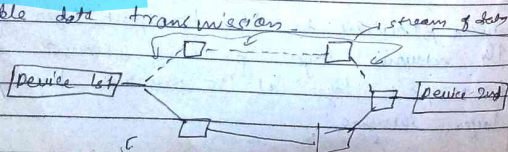 ble data transmission.
stream of data
Device 1st
Device 2nd